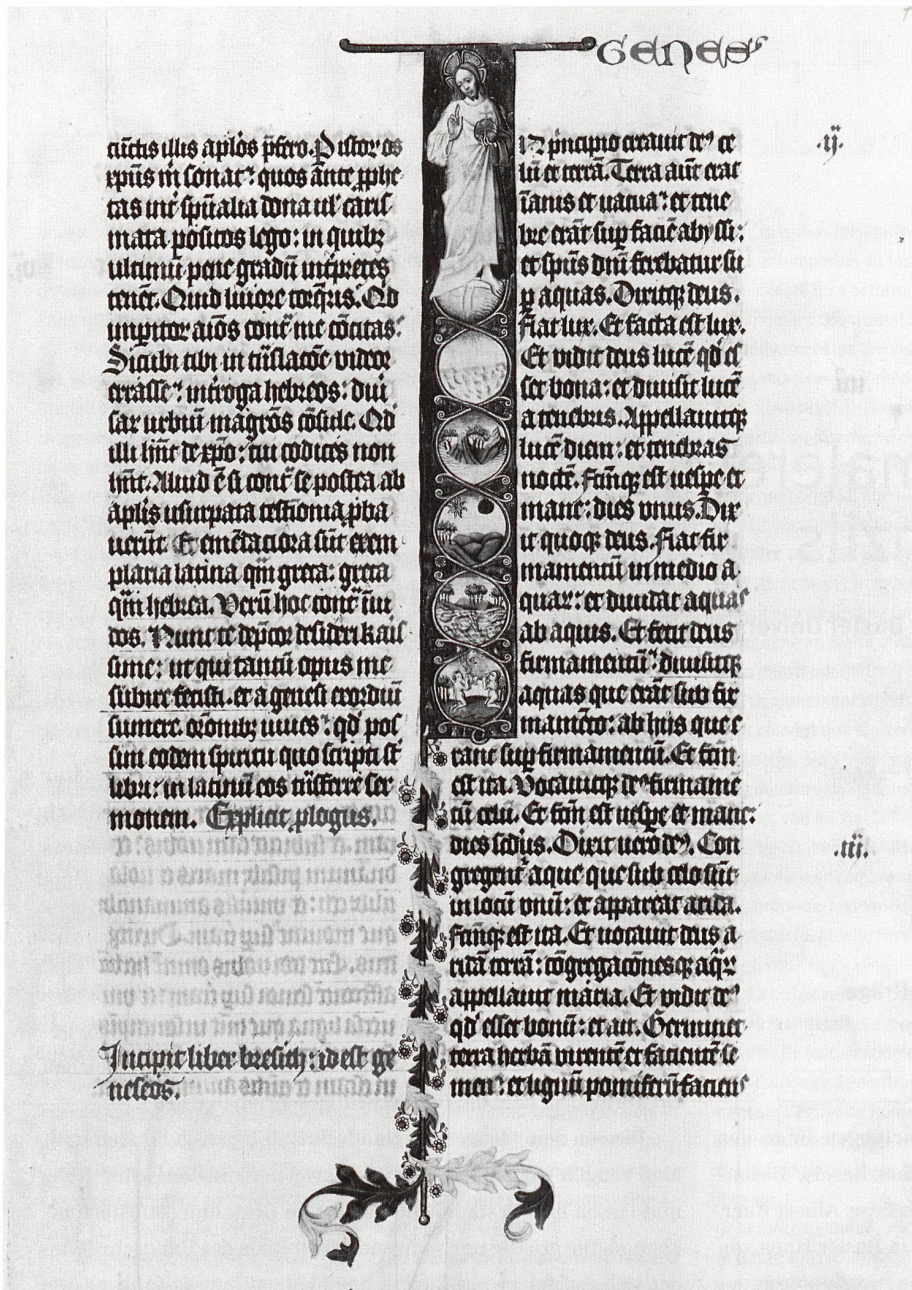 GENES
cūctis illis aplōs p̄fero. P istoꝝ os
xpūs m̄ sonat: quos ante ꝓphe
tas int̄ spūalia dona ul' caris
mata positos lego: in quibꝫ
ultimū pene gradū int̄pretes
tenēt. Quid liuore torq̄ris. Qd
impitoꝝ aiōs cont̄ me cōcitas:
Sicubi tibi in tn̄slacōe videor
errasse: int̄roga hebreos: diū
sarꝝ urbiū magr̄os cōsule. Qd
illi hn̄t de xp̄o: tui codices non
hn̄t. Aliud ē si cont̄ se postea ab
aplīs usurpata testīonia ꝓba
uerūt. Et emēdaciora sūt exem
plaria latina qm̄ greca: greca
qm̄ hebrea. Verū hoc cont̄ īui
dos. Nunc te dep̄cor desideri kaīs
sime: ut qui tantū opus me
subire fecisti. et a genesi exordiū
sumere. orōnibꝫ iuues: qd' pos
sim eodem spiritu quo scripti sūt
libri: in latinū eos tn̄sferre ser
monem. Explicit ꝓlogus.
Incipit liber bresith: id est ge
neseos.
IN p̄ncipio creauit deꝰ ce
lū et terrā. Terra aūt erat
īanis et uacua: et tene
bre erāt suꝑ faciē abyssi:
et spūs dn̄i ferebatur su
ꝑ aquas. Dixitqꝫ deus.
Fiat lux. Et facta est lux.
Et vidit deus lucē qd' es
set bona: et diuisit lucē
a tenebris. Appellauitqꝫ
lucē diem: et tenebras
noctē. Factūqꝫ est uespe et
mane: dies vnus. Dix
it quoqꝫ deus. Fiat fir
mamentū in medio a
quaꝝ: et diuidat aquas
ab aquis. Et fecit deus
firmamentū: diuisitqꝫ
aquas que erāt sub fir
mamēto: ab hiis que e
rant suꝑ firmamentū. Et fc̄m
est ita. Vocauitqꝫ deꝰ firmame
tū celū. Et fc̄m est uespe et mane:
dies scdūs. Dixit uero deꝰ. Con
gregent̄ aque que sub celo sūt
in locū vnū: et appareat arida.
Factūqꝫ est ita. Et uocauit deus a
ridā terrā: cōgregacōnesqꝫ aqꝝ
appellauit maria. Et vidit deꝰ
qd' esset bonū: et ait. Germinet
terra herbā virentē et facientē se
men: et lignū pomiferū faciens
.ij.
.iii.